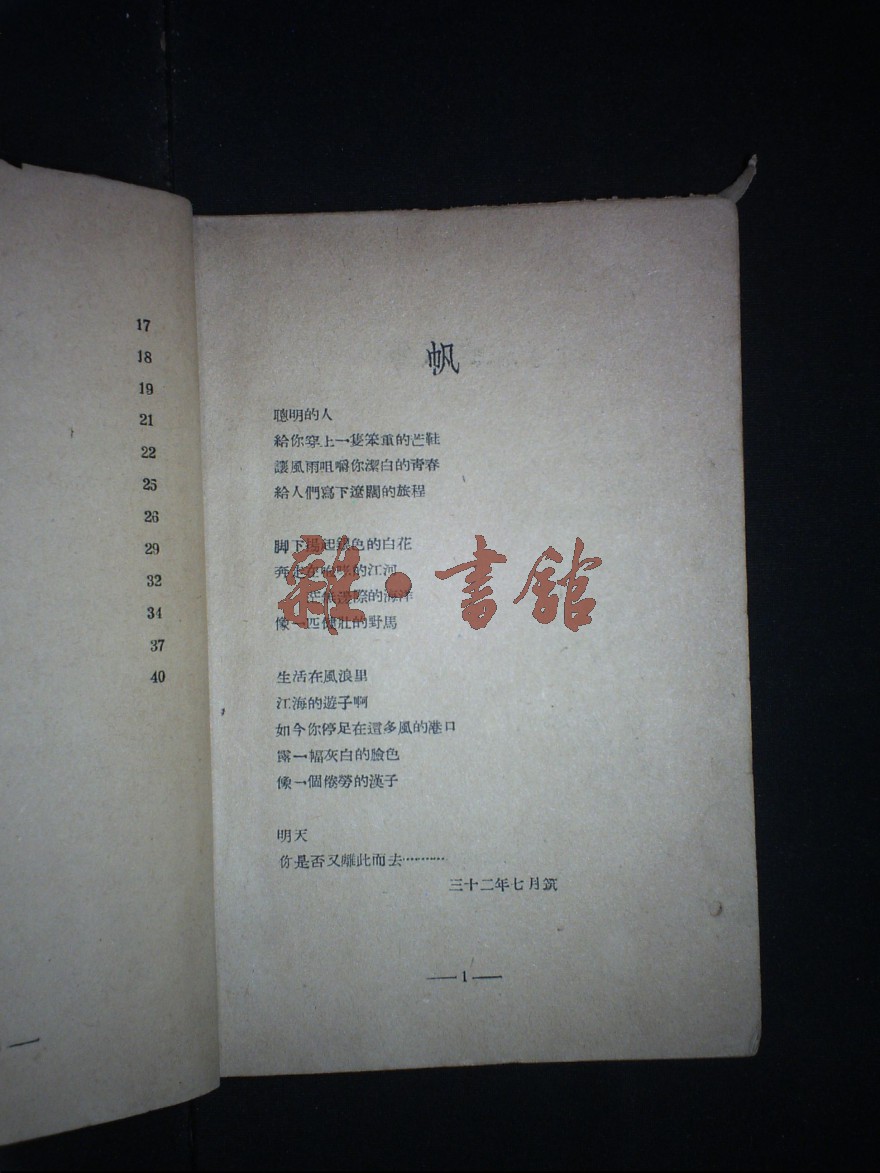 17
18
19
21
22
25
26
29
32
34
37
40
帆
聰明的人
給你穿上一隻笨重的芒鞋
讓風雨咀嚼你潔白的青春
給人們寫下遼闊的旅程
脚下揚起銀色的白花
奔走在的江河
茫無邊際的海洋
像一匹健壯的野馬
生活在風浪里
江海的遊子啊
如今你停足在這多風的港口
露一幅灰白的臉色
像一個倦勞的漢子
明天
你是否又離此而去…………
三十二年七月筑
—1—
雜·書館